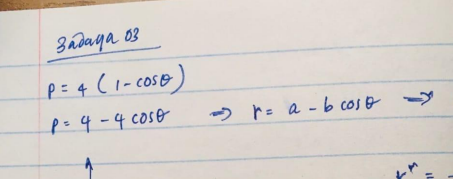 Задача 03
ρ = 4 (1 - cosθ)
ρ = 4 - 4 cosθ ⇒ r = a - b cosθ ⇒
↑
r^n =